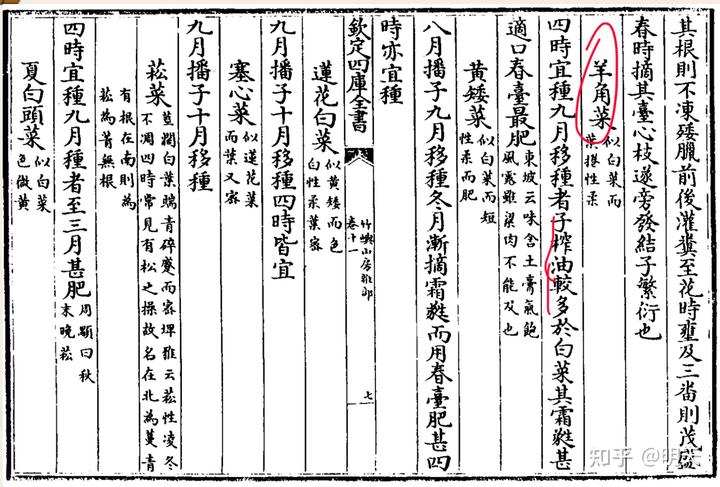 其根則不凍殘臘前後灌糞至花時壅及三畨則茂盛
春時摘其臺心枝遂旁發結子繁衍也
羊角菜似白菜而
葉捲性柔
四時宜種九月移種者子搾油較多於白菜其霜㽔甚
適口春臺最肥東坡云味含土膏氣飽
風露雖粱肉不能及也
黃矮菜似白菜而短
性柔而肥
八月播子九月移種冬月漸摘霜㽔而用春臺肥甚四
時亦宜種
欽定四庫全書
竹嶼山房雜部
卷十一
七
蓮花白菜似黃矮而色
白性柔葉宻
九月播子十月移種四時皆宜
塞心菜似蓮花菜
而葉又宻
九月播子十月移種
菘菜莖濶白葉臈青碎蹙而宻埤雅云菘性凌冬
不凋四時常見有松之操故名在北為蔓青
有根在南則為
菘為菁無根
四時宜種九月種者至三月甚肥周顒曰秋
末晚菘
夏白頭菜似白菜
色做黃
知乎 @明